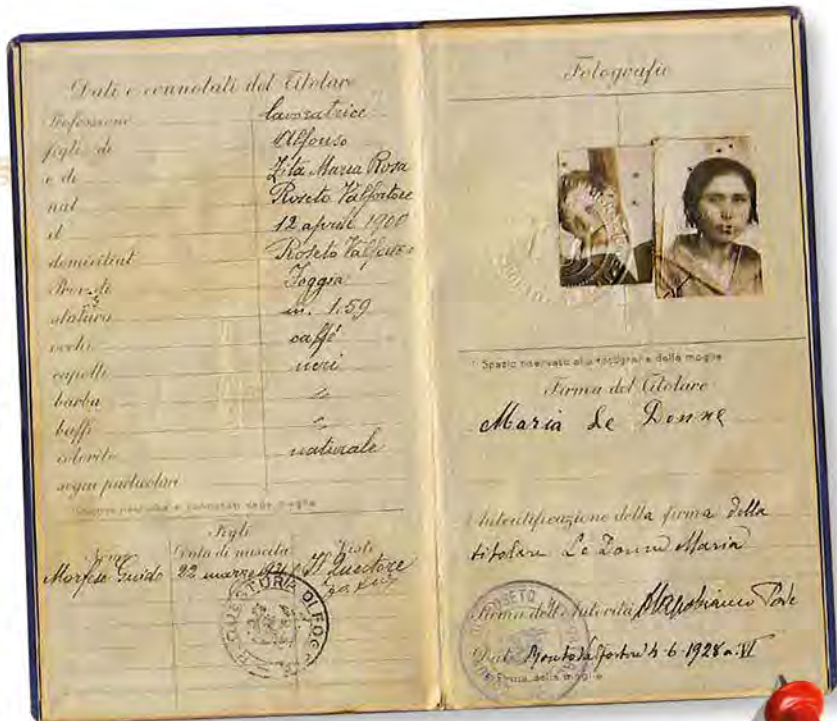 Dati e connotati del Titolare
Professione lavoratrice
figli di Alfonso
e di Zita Maria Rosa
nat Roseto Valfortore
il 12 aprile 1900
domiciliat Roseto Valfortore
Prov. di Foggia
statura m. 1.59
occhi caffé
capelli neri
barba
baffi
colorito naturale
segni particolari
Figli
Nome Data di nascita Visti
Morfese Guido 22 marzo Il Questore
QUESTURA DI FOGG
Fotografie
Spazio riservato alla fotografia della moglie
Firma del Titolare
Maria Le Donne
Autentificazione della firma della
titolare Le Donne Maria
Firma dell'Autorità
ROSETO
4-6-1928 a. VI
Firma della moglie